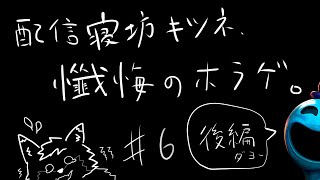 配信寝坊キツネ、
懺悔のホラゲ。
#6
後編
ダヨー